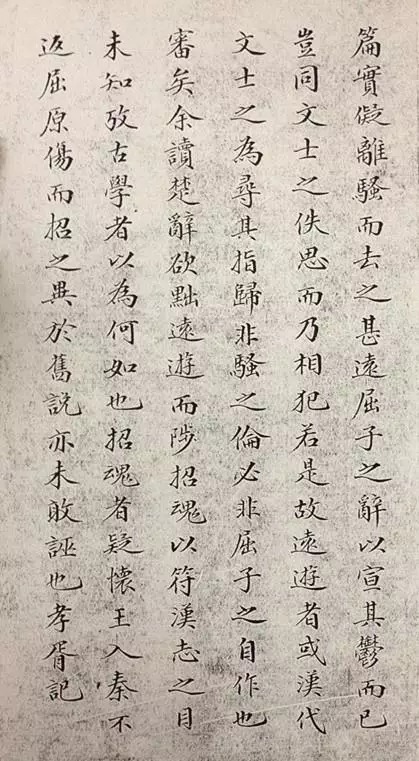 篇實儗離騷而去之甚遠屈子之辭以宣其鬱而已
豈同文士之佚思而乃相犯若是故遠遊者或漢代
文士之為尋其指歸非騷之倫必非屈子之自作也
審矣余讀楚辭欲黜遠遊而陟招魂以符漢志之目
未知攷古學者以為何如也招魂者疑懷王入秦不
返屈原傷而招之異於舊説亦未敢誣也孝胥記